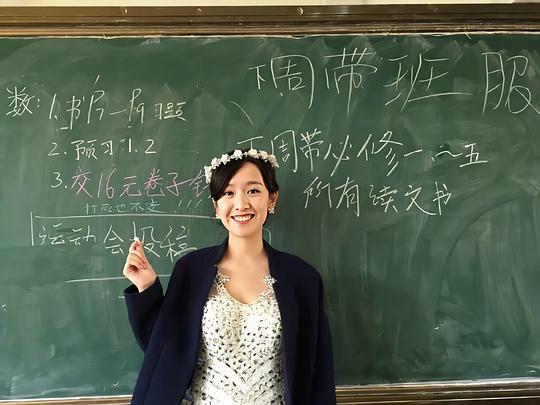 数: 1.书P5—P9习题
2.预习1.2
3.交16元卷子钱
打死也不交!!!
运动会投稿
下周带班服
下周带必修一~五
所有读文书